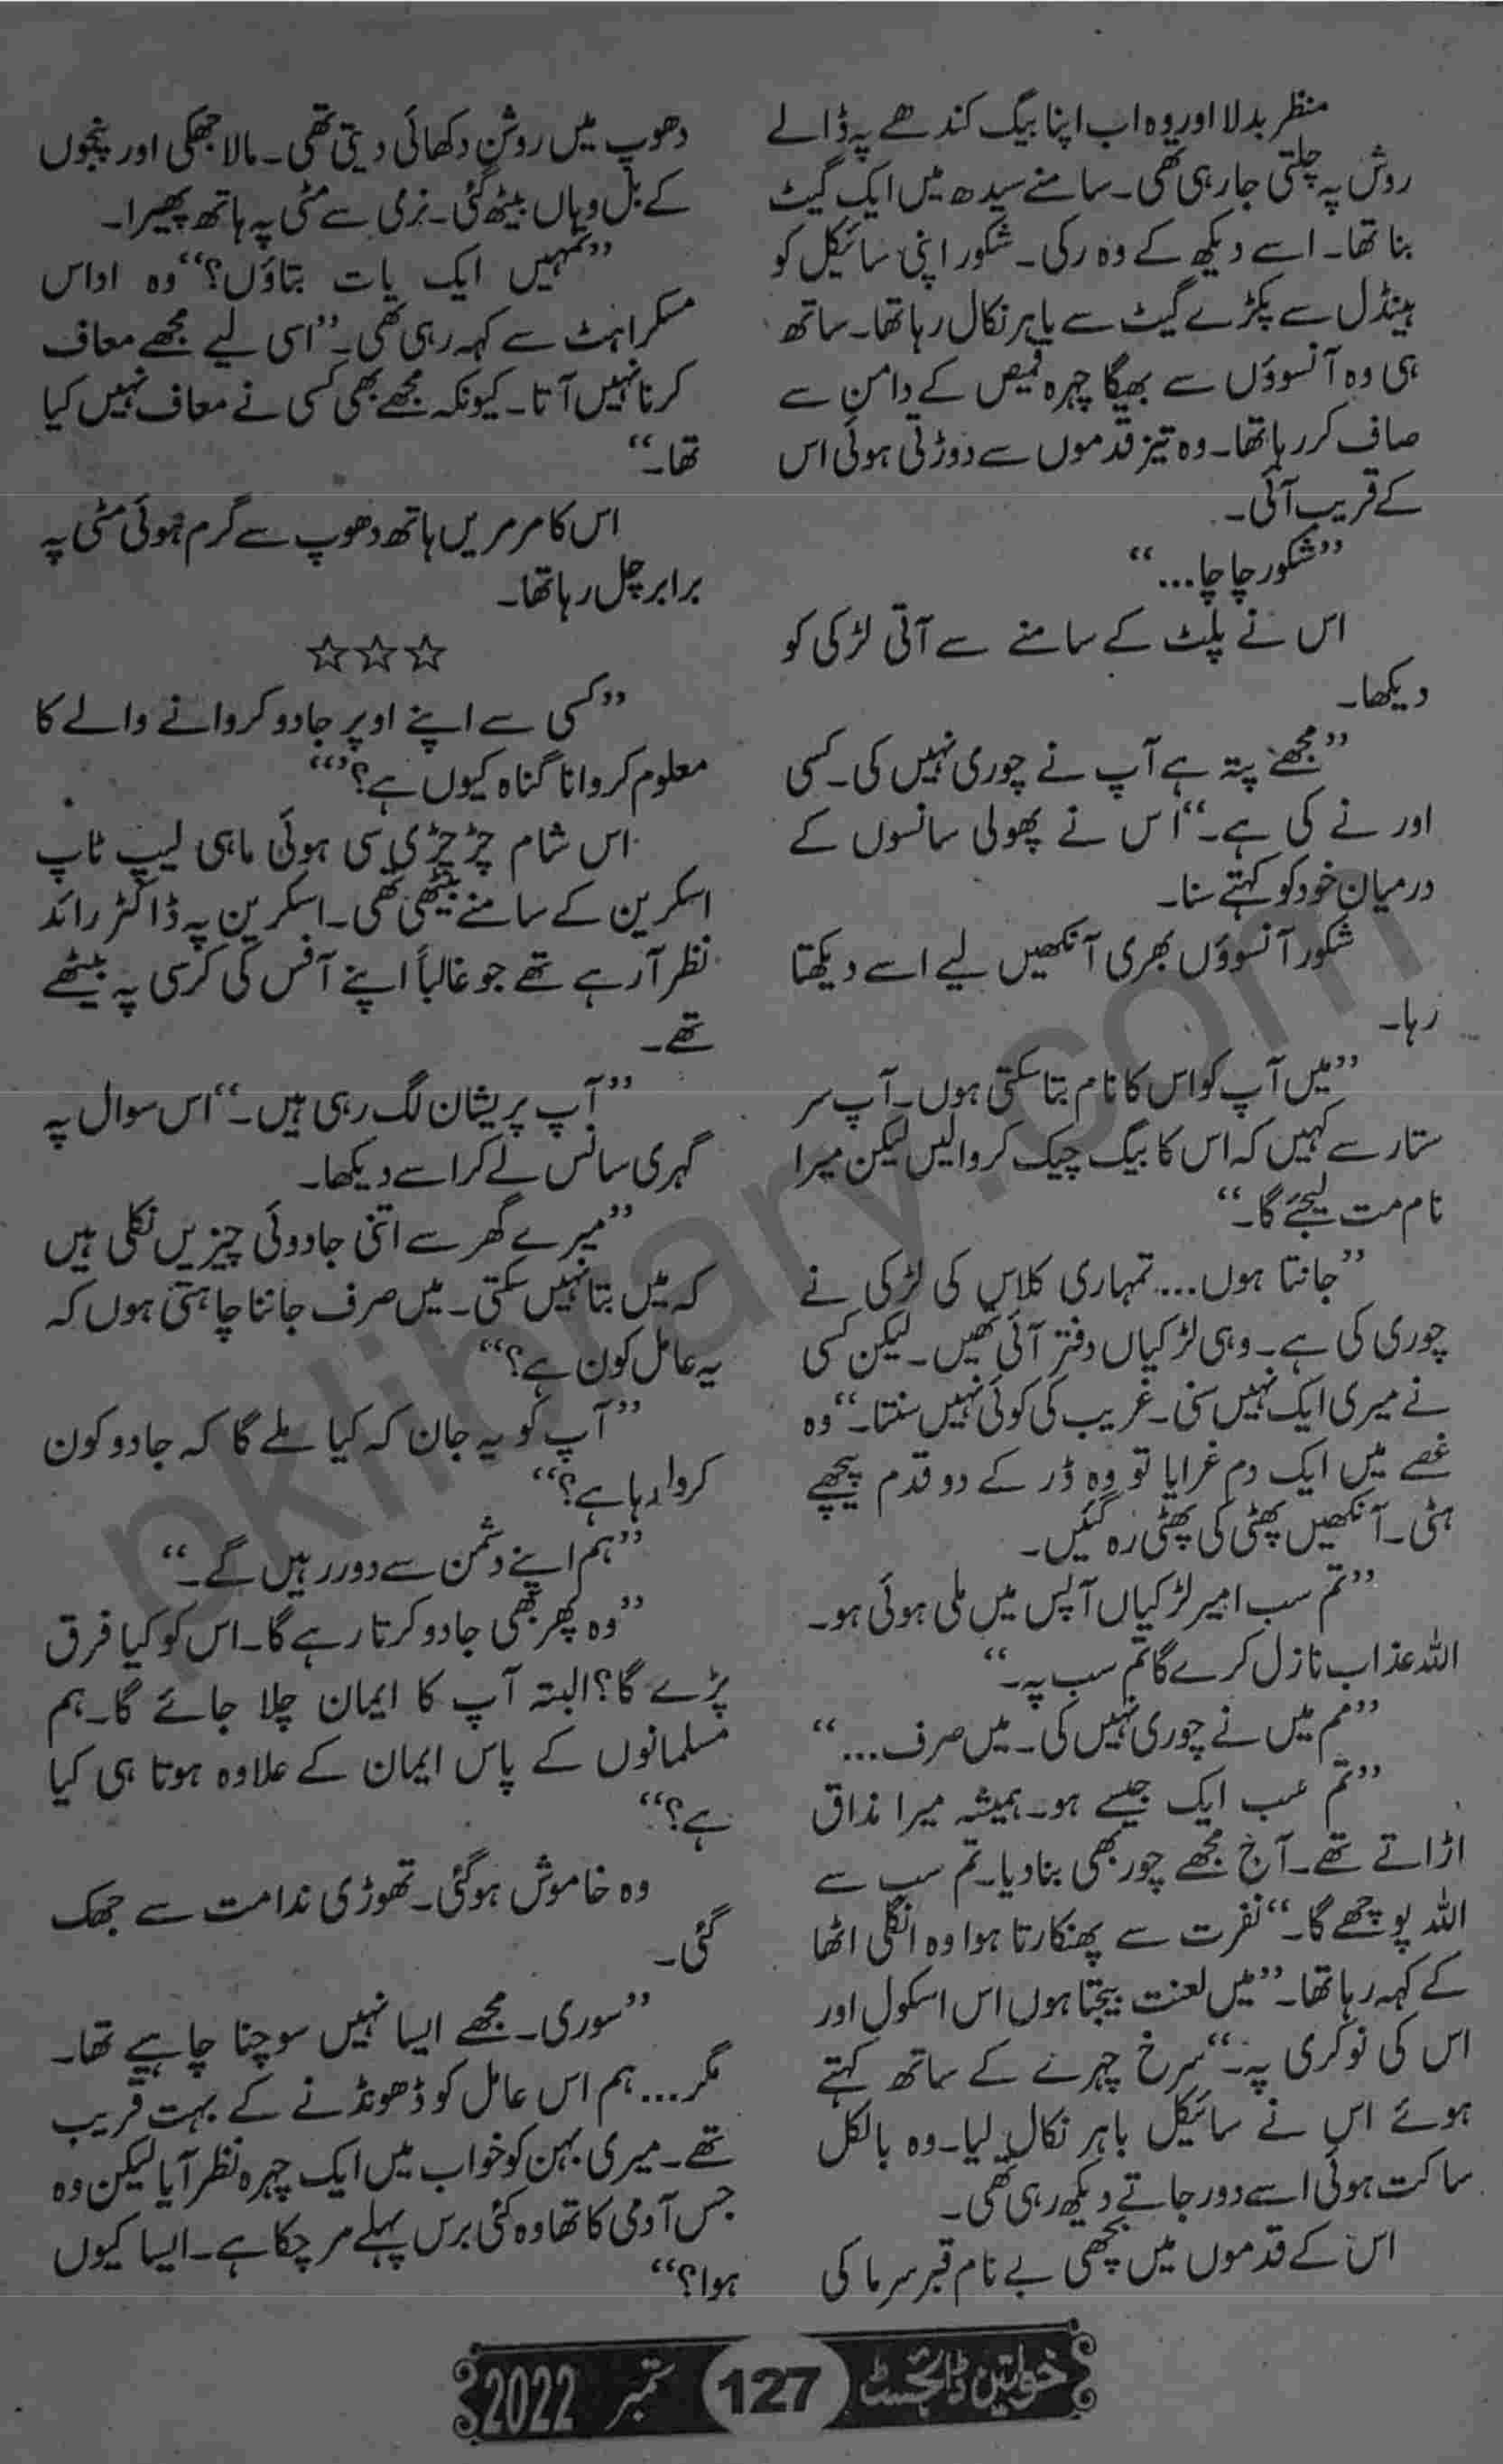 منظر بدلا اور وہ اب اپنا بیگ کندھے پہ ڈالے
روش پہ چلتی جا رہی تھی۔ سامنے سیدھ میں ایک گیٹ
بنا تھا۔ اسے دیکھ کے وہ رکی۔ شکور اپنی سائیکل کو
ہینڈل سے پکڑے گیٹ سے باہر نکال رہا تھا۔ ساتھ
ہی وہ آنسوؤں سے بھیگا چہرہ قمیص کے دامن سے
صاف کر رہا تھا۔ وہ تیز قدموں سے دوڑتی ہوئی اس
کے قریب آئی۔
”شکور چاچا...“
اس نے پلٹ کے سامنے سے آتی لڑکی کو
دیکھا۔
”مجھے پتہ ہے آپ نے چوری نہیں کی۔ کسی
اور نے کی ہے۔“ اس نے پھولی سانسوں کے
درمیان خود کو کہتے سنا۔
شکور آنسوؤں بھری آنکھیں لیے اسے دیکھتا
رہا۔
”میں آپ کو اس کا نام بتا سکتی ہوں۔ آپ سر
ستار سے کہیں کہ اس کا بیگ چیک کروا لیں لیکن میرا
نام مت لیجئے گا۔“
”جانتا ہوں... تمہاری کلاس کی لڑکی نے
چوری کی ہے۔ وہی لڑکیاں دفتر آئی تھیں۔ لیکن کسی
نے میری ایک نہیں سنی۔ غریب کی کوئی نہیں سنتا۔“ وہ
غصے میں ایک دم غرایا تو وہ ڈر کے دو قدم پیچھے
ہٹی۔ آنکھیں پھٹی کی پھٹی رہ گئیں۔
”تم سب امیر لڑکیاں آپس میں ملی ہوئی ہو۔
اللہ عذاب نازل کرے گا تم سب پہ۔“
”مم میں نے چوری نہیں کی۔ میں صرف...“
”تم سب ایک جیسے ہو۔ ہمیشہ میرا مذاق
اڑاتے تھے۔ آج مجھے چور بھی بنا دیا۔ تم سب سے
اللہ پوچھے گا۔“ نفرت سے پھنکارتا ہوا وہ انگلی اٹھا
کے کہہ رہا تھا۔ ”میں لعنت بھیجتا ہوں اس اسکول اور
اس کی نوکری پہ۔“ سرخ چہرے کے ساتھ کہتے
ہوئے اس نے سائیکل باہر نکال لیا۔ وہ بالکل
ساکت ہوئی اسے دور جاتے دیکھ رہی تھی۔
اس کے قدموں میں بچھی بے نام قبر سرما کی
دھوپ میں روشن دکھائی دیتی تھی۔ مالا جھکی اور پنجوں
کے بل وہاں بیٹھ گئی۔ نرمی سے مٹی پہ ہاتھ پھیرا۔
”تمہیں ایک بات بتاؤں؟“ وہ اداس
مسکراہٹ سے کہہ رہی تھی۔ ”اسی لیے مجھے معاف
کرنا نہیں آتا۔ کیونکہ مجھے بھی کسی نے معاف نہیں کیا
تھا۔“
اس کا مرمریں ہاتھ دھوپ سے گرم ہوئی مٹی پہ
برابر چل رہا تھا۔
☆☆☆
”کسی سے اپنے اوپر جادو کروانے والے کا
معلوم کروانا گناہ کیوں ہے؟“
اس شام چڑچڑی سی ہوئی ماہی لیپ ٹاپ
اسکرین کے سامنے بیٹھی تھی۔ اسکرین پہ ڈاکٹر رائد
نظر آ رہے تھے جو غالباً اپنے آفس کی کرسی پہ بیٹھے
تھے۔
”آپ پریشان لگ رہی ہیں۔“ اس سوال پہ
گہری سانس لے کر اسے دیکھا۔
”میرے گھر سے اتنی جادوئی چیزیں نکلی ہیں
کہ میں بتا نہیں سکتی۔ میں صرف جاننا چاہتی ہوں کہ
یہ عامل کون ہے؟“
”آپ کو یہ جان کہ کیا ملے گا کہ جادو کون
کروا رہا ہے؟“
”ہم اپنے دشمن سے دور رہیں گے۔“
”وہ پھر بھی جادو کرتا رہے گا۔ اس کو کیا فرق
پڑے گا؟ البتہ آپ کا ایمان چلا جائے گا۔ ہم
مسلمانوں کے پاس ایمان کے علاوہ ہوتا ہی کیا
ہے؟“
وہ خاموش ہو گئی۔ تھوڑی ندامت سے جھک
گئی۔
”سوری۔ مجھے ایسا نہیں سوچنا چاہیے تھا۔
مگر... ہم اس عامل کو ڈھونڈنے کے بہت قریب
تھے۔ میری بہن کو خواب میں ایک چہرہ نظر آیا لیکن وہ
جس آدمی کا تھا وہ کئی برس پہلے مر چکا ہے۔ ایسا کیوں
ہوا؟“
خواتین ڈائجسٹ 127 ستمبر 2022
pklibrary.com